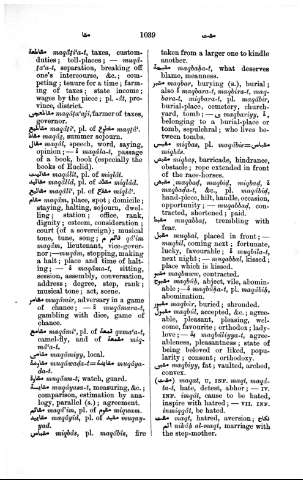 مقاطعة
1039
مقت
مقاطعة maqāṭi‘a-t, taxes, custom-
duties; toll-places; — muqā-
ṭa‘a-t, separation, breaking off
one's intercourse, &c.; com-
peting; tenure for a time; farm-
ing of taxes; state income;
wages by the piece; pl. -āt, pro-
vince, district.
maqāṭa‘ajī, farmer of taxes,
governor.
maqāṭī‘, pl. of مقطوع maqṭū‘.
maqāẓ, summer sojourn.
مقال maqāl, speech, word, saying,
opinion; — ة maqāla-t, passage
of a book, book (especially the
books of Euclid).
مقاليت maqālīt, pl. of miqlāt.
مقاليد maqālīd, pl. of miqlād.
مقاليع maqālī‘, pl. of مقلاع miqlā‘.
مقام maqām, place, spot; domicile,
staying, halting, sojourn, dwel-
ling; station; office, rank,
dignity; esteem, consideration;
court (of a sovereign); musical
tone, tune, song; قائم م qā’im
maqām, lieutenant, vice-gover-
nor; — muqām, stopping, making
a halt; place and time of halt-
ing; — ة maqāma-t, sitting,
session, assembly, conversation,
address; degree, step, rank;
musical tone; act, scene.
مقامر muqāmir, adversary in a game
of chance; — ة muqāmara-t,
gambling with dice, game of
chance.
pl. of
camel-dly, and of
مقامى maqāmiyy, local.
muqāwada-t =
مقاواة muqāwāt, watch, guard.
مقايسة muqāyasa-t, measuring, &c.;
comparison, estimation by ana-
logy, parallel (s.); agreement.
pl. of
مقباس miqbās, pl. maqābīs, fire
taken from a larger one to kindle
another.
maqbaḥa-t, what deserves
blame, meanness.
مقبر maqbar, burying (s.), burial;
also ة maqbara-t, maqbira-t, maq-
bura-t, miqbara-t, pl. maqābir,
burial-place, cemetery, church-
yard, tomb; — ى maqbariyy,
belonging to a burial-place or
tomb, sepulchral; who lives be-
tween tombs.
مقبس miqbas, pl. maqābis =
miqbās.
miqbaṣ, barricade, hindrance,
obstacle; rope extended in front
of the race-horses.
مقبض maqbaḍ, maqbiḍ, miqbaḍ, ة
maqbaḍa-t, &c., pl. maqābiḍ
hand-piece, hilt, handle, occasion,
opportunity; — muqabbaḍ, con-
tracted, shortened; paid.
trembling with
fear.
مقبل muqbal, placed in front; —
muqbil, coming next; fortunate,
lucky, favourable; ة muqbila-t,
next night; — muqabbal, kissed;
place which is kissed.
contracted.
مقبوح maqbūḥ, abject, vile, abomin-
able; — ة maqbūḥa-t, pl. maqābīḥ,
abomination.
مقبور maqbūr, buried; shrouded.
مقبول maqbūl, accepted, &c.; agree-
able, pleasant, pleasing, wel-
come, favourite; orthodox; lady-
love; — ة maqbūliyya-t, agree-
ableness, pleasantness; state of
being beloved or liked, popu-
larity; consent; orthodoxy.
maqbiyy, fat; vaulted, arched,
convex.
(مقت) maqat, U, INF. maqt, maqā-
ta-t, hate, detest, abhor; — IV.
INF. imqāt, cause to be hated,
inspire with hatred; — VII. INF.
inmiqāt, be hated.
مقت maqt, hatred, aversion; نكاح
الم nikāḥ al-maqt, marriage with
the step-mother.